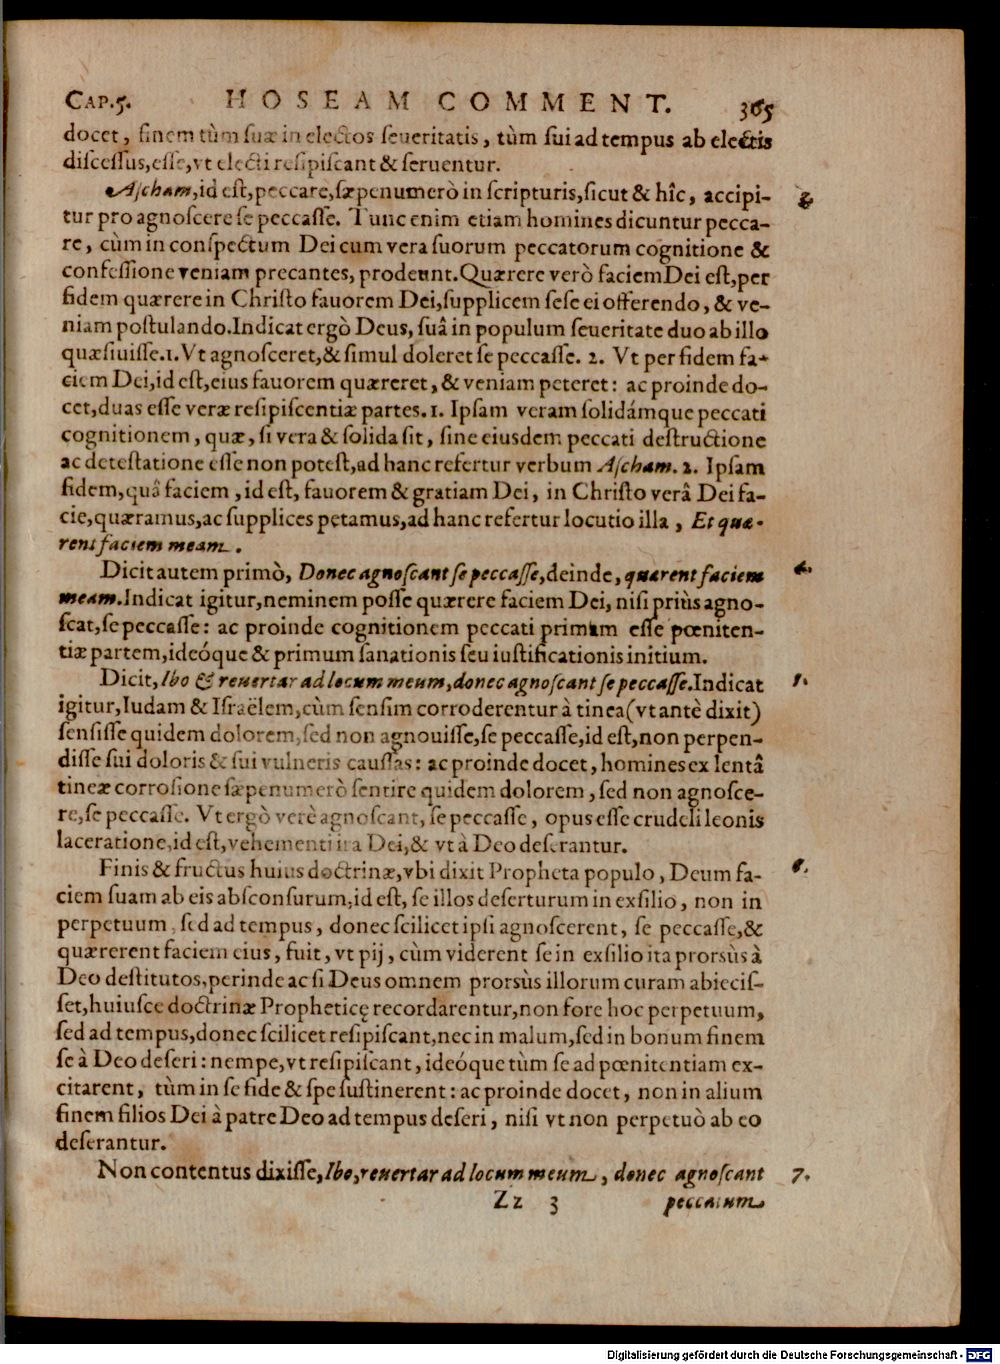 CAP.5. HOSEAM COMMENT. 365
docet, finem tùm suæ in electos seueritatis, tùm sui ad tempus ab electis
discessus, esse, vt electi resipiscant & seruentur.
Ascham, id est, peccare, sæpenumerò in scripturis, sicut & hîc, accipi- 3.
tur pro agnoscere se peccasse. Tunc enim etiam homines dicuntur pecca-
re, cùm in conspectum Dei cum vera suorum peccatorum cognitione &
confessione veniam precantes, prodeunt. Quærere verò faciem Dei est, per
fidem quærere in Christo fauorem Dei, supplicem sese ei offerendo, & ve-
niam postulando. Indicat ergò Deus, suâ in populum seueritate duo ab illo
quæsiuisse. 1. Vt agnosceret, & simul doleret se peccasse. 2. Vt per fidem fa-
ciem Dei, id est, eius fauorem quæreret, & veniam peteret: ac proinde do-
cet, duas esse veræ resipiscentiæ partes. 1. Ipsam veram solidámque peccati
cognitionem, quæ, si vera & solida sit, sine eiusdem peccati destructione
ac detestatione esse non potest, ad hanc refertur verbum Ascham. 2. Ipsam
fidem, quâ faciem, id est, fauorem & gratiam Dei, in Christo verâ Dei fa-
cie, quæramus, ac supplices petamus, ad hanc refertur locutio illa, Et quæ-
rent faciem meam.
Dicit autem primò, Donec agnoscant se peccasse, deinde, quærent faciem 4.
meam. Indicat igitur, neminem posse quærere faciem Dei, nisi priùs agno-
scat, se peccasse: ac proinde cognitionem peccati primam esse pœniten-
tiæ partem, ideóque & primum sanationis seu iustificationis initium.
Dicit, Ibo & reuertar ad locum meum, donec agnoscant se peccasse. Indicat 5.
igitur, Iudam & Israëlem, cùm sensim corroderentur à tinea (vt antè dixit)
sensisse quidem dolorem, sed non agnouisse, se peccasse, id est, non perpen-
disse sui doloris & sui vulneris caussas: ac proinde docet, homines ex lentâ
tineæ corrosione sæpenumerò sentire quidem dolorem, sed non agnosce-
re, se peccasse. Vt ergò verè agnoscant, se peccasse, opus esse crudeli leonis
laceratione, id est, vehementi ira Dei, & vt à Deo deserantur.
Finis & fructus huius doctrinæ, vbi dixit Propheta populo, Deum fa- 6.
ciem suam ab eis absconsurum, id est, se illos deserturum in exsilio, non in
perpetuum, sed ad tempus, donec scilicet ipsi agnoscerent, se peccasse, &
quærerent faciem eius, fuit, vt pij, cùm viderent se in exsilio ita prorsùs à
Deo destitutos, perinde ac si Deus omnem prorsùs illorum curam abiecis-
set, huiusce doctrinæ Propheticę recordarentur, non fore hoc perpetuum,
sed ad tempus, donec scilicet resipiscant, nec in malum, sed in bonum finem
se à Deo deseri: nempe, vt resipiscant, ideóque tùm se ad pœnitentiam ex-
citarent, tùm in se fide & spe sustinerent: ac proinde docet, non in alium
finem filios Dei à patre Deo ad tempus deseri, nisi vt non perpetuò ab eo
deserantur.
Non contentus dixisse, Ibo, reuertar ad locum meum, donec agnoscant 7.
Zz 3 peccatum
Digitalisierung gefördert durch die Deutsche Forschungsgemeinschaft - DFG